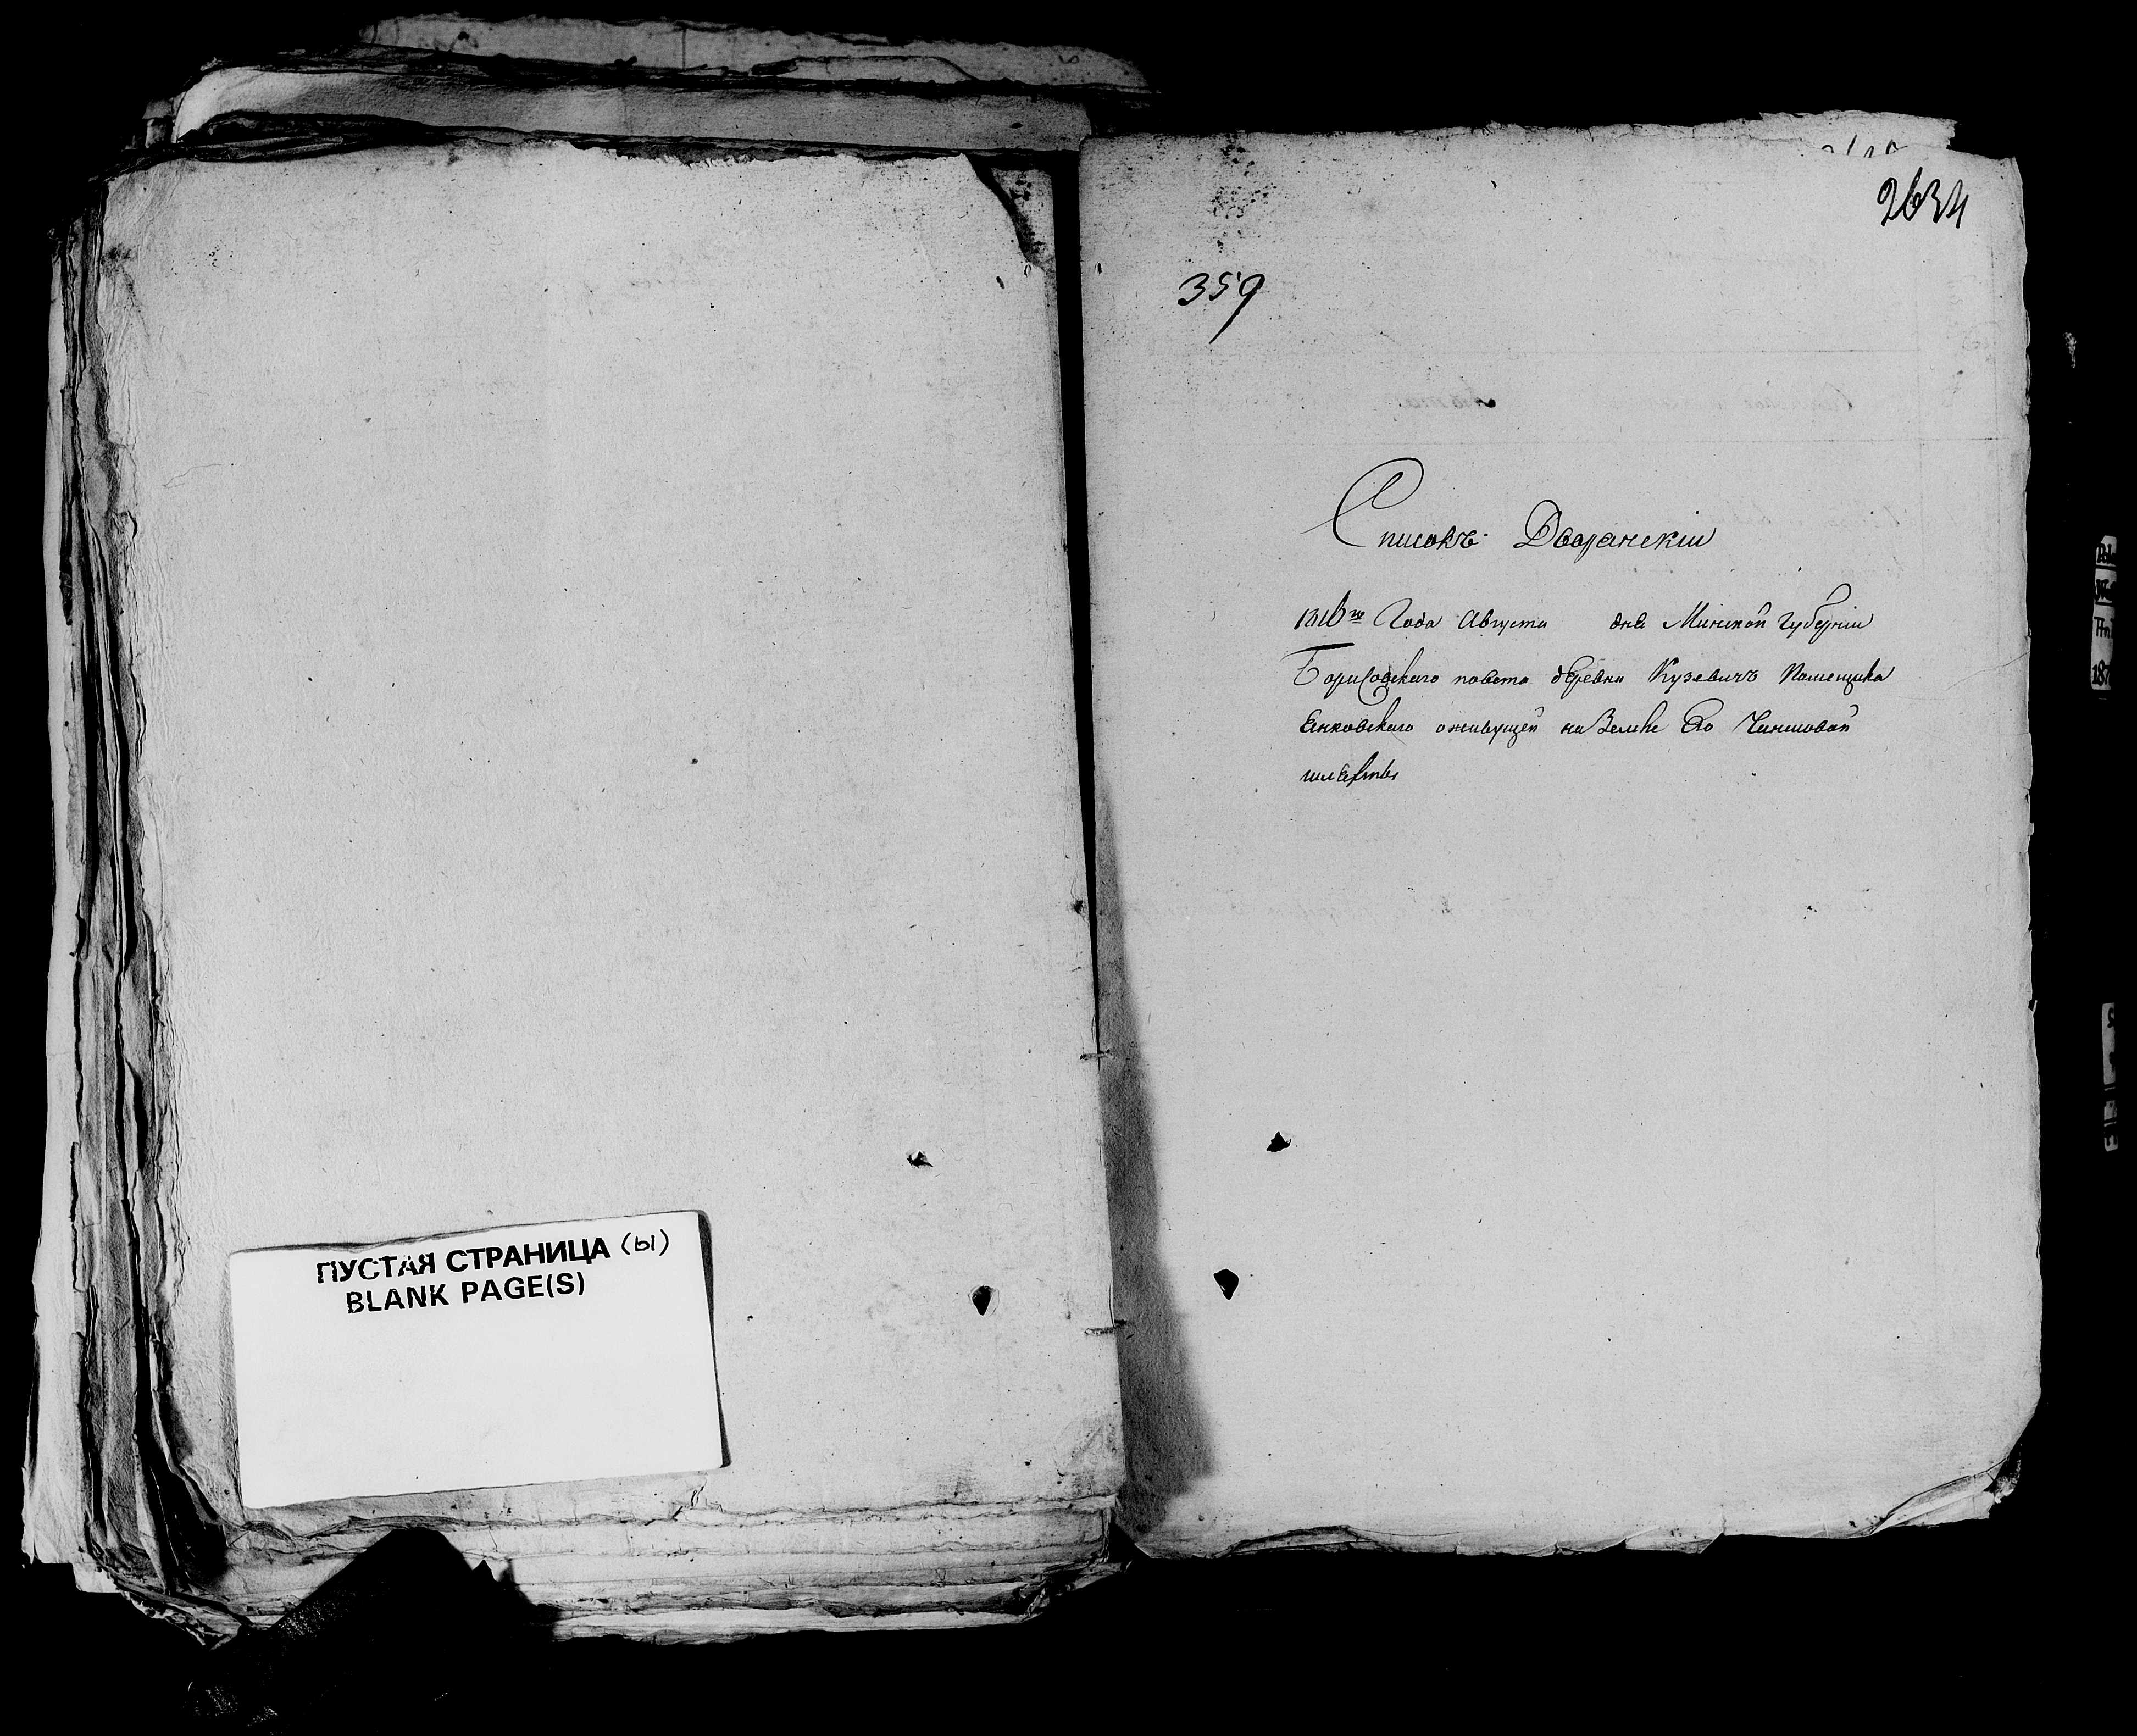 2634
359
Списокъ Дворянскіи
1816го Года Августа дня Минской Губерніи
Борисовскаго повета деревни Кузевичъ Помещика
Енковскаго оживущей на Земле Его Чиншовой
шляхты
ПУСТАЯ СТРАНИЦА (ы)
BLANK PAGE(S)